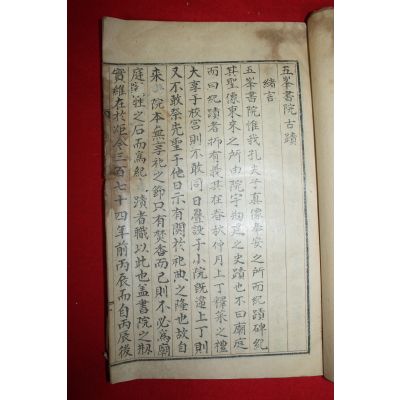 五峯書院古蹟
緒言
五峯書院惟我孔夫子眞像奉安之所而紀蹟碑紀
其聖像東來之所由院宇刱建之史蹟也不曰廟庭
而曰紀蹟者抑有義其在春秋仲月上丁釋菜之禮
大享于校宮則不敢同日疊設于小院旣違上丁則
又不敢祭先聖于他日示有關於祀典之隆也故自
來 院本無享祀之節只有焚香而已則不必爲廟
庭 之石而爲紀 蹟者職以此也盖書院之刱
實維在於距今三百七十四年前丙辰而自丙辰後